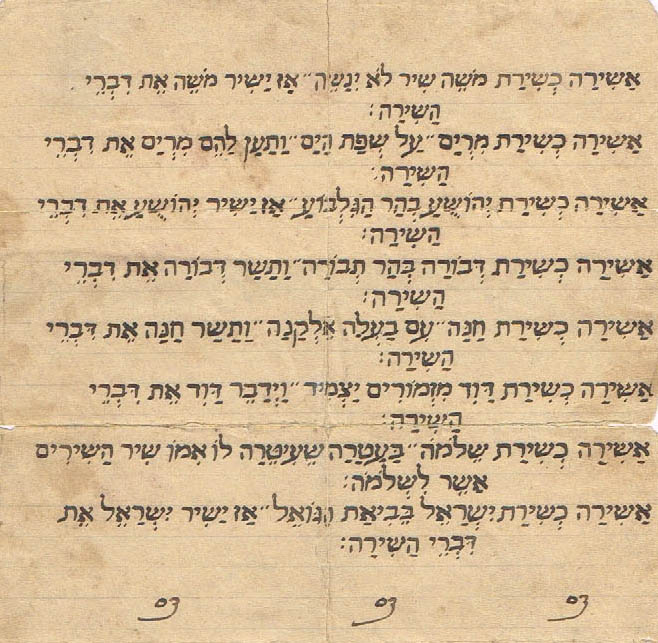 אַשִירָה כְּשִירַת מֹשֶה שִיר לֹא יִנָשֶה״ אָז יַשִיר מֹשֶה אֶת דִבְרֵי
הַשִירָה:
אַשִירָה כְּשִירַת מִרְיָם״ עַל שְפַת הַיָם״ וַתַעַן לָהֶם מִרְיָם אֶת דִבְרֵי
הַשִירָה:
אַשִירָה כְּשִירַת יְהוֹשֻעַ בְּהַר הַגִלְבּוֹעַ״ אָז יַשִיר יְהוֹשֻעַ אֶת דִבְרֵי
הַשִירָה:
אַשִירָה כְּשִירַת דְבוֹרָה בְּהַר תָבוֹרָה״ וַתָשַר דְבוֹרָה אֶת דִבְרֵי
הַשִירָה:
אַשִירָה כְּשִירַת חַנָה״ עִם בַּעְלָה אֶלְקָנָה״ וַתָשַר חַנָה אֶת דִבְרֵי
הַשִירָה:
אַשִירָה כְּשִירַת דָוִד מִזְמוֹרִים יַצְמִיד״ וַיְדַבֵּר דָוִד אֶת דִבְרֵי
הַשִירָה:
אַשִירָה כְּשִירַת שְלֹמֹה״ בָּעֲטָרָה שֶעִיטְרָה לוֹ אִמוֹ שִיר הַשִירִים
אֲשֶר לִשְלֹמֹה:
אַשִירָה כְּשִירַת יִשְרָאֵל בְּבִיאַת הַגוֹאֵל״ אָז יַשִיר יִשְרָאֵל אֶת
דִבְרֵי הַשִירָה: